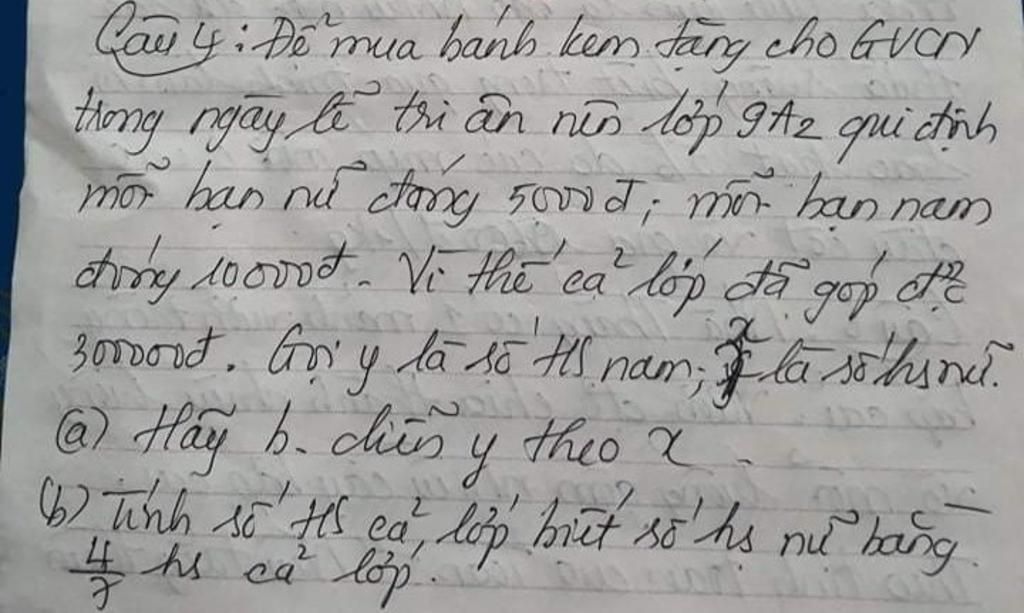 Câu 4: Để mua bánh kem tặng cho GVCN
trong ngày lễ tri ân nên lớp 9A2 qui định
mỗi bạn nữ đóng 5000đ; mỗi bạn nam
đóng 10000đ. Vì thế cả lớp đã góp đc
300000đ. Gọi y là số HS nam; x là số hs nữ.
(a) Hãy b. diễn y theo x
(b) Tính số HS cả lớp biết số hs nữ bằng
4/7 hs cả lớp.